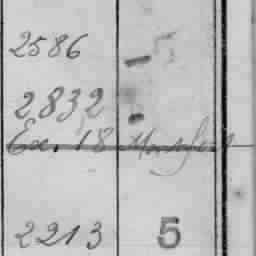 2586
2832
Ex. 18
2213 5